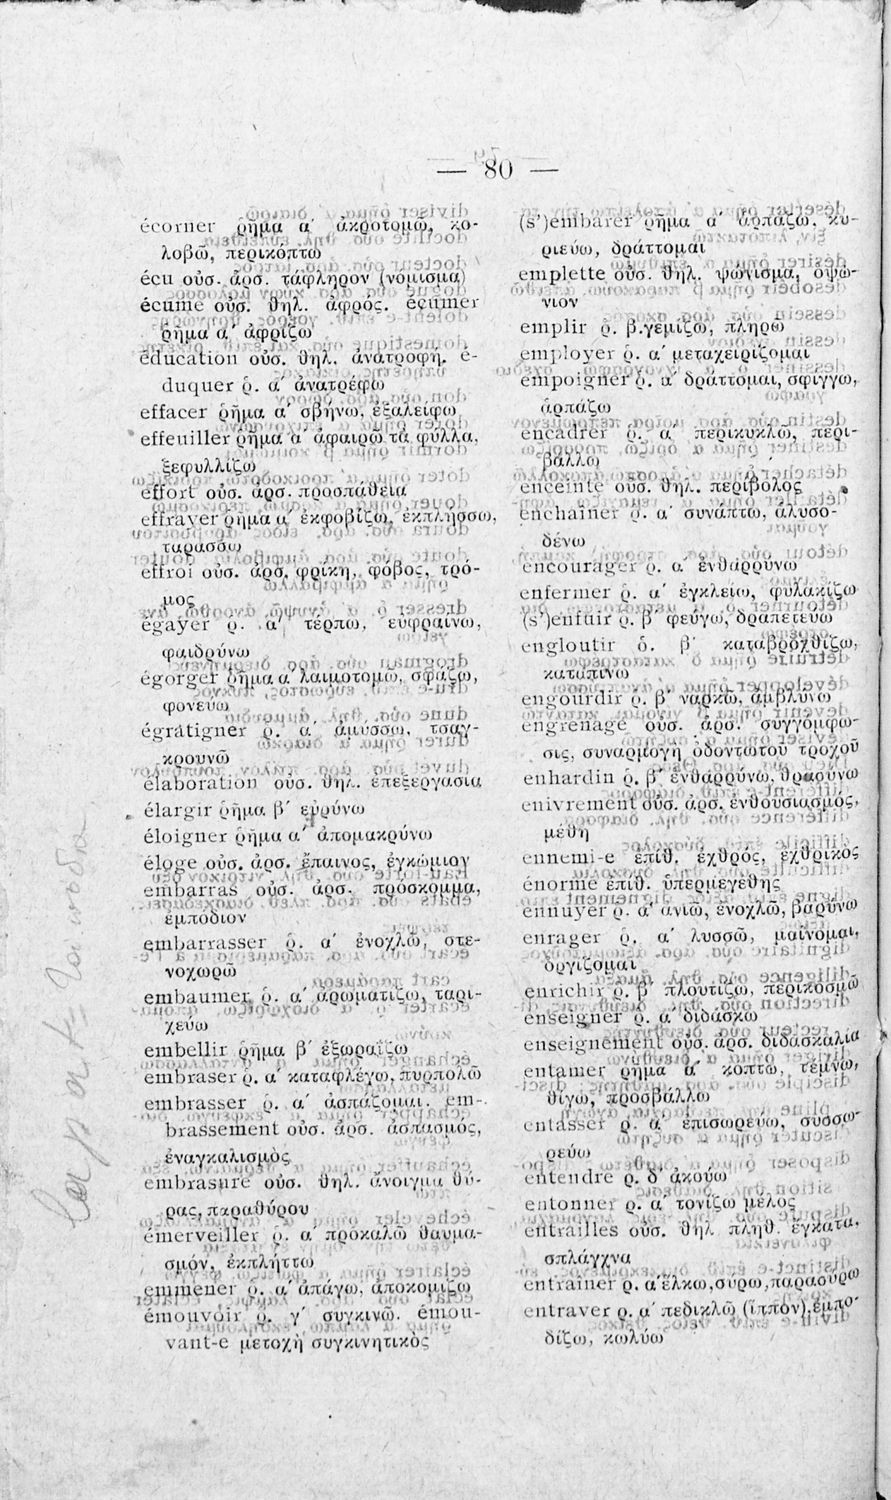 — 80 —
écorner ῥῆμα α΄ ἀκροτομῶ, κο-
λοβῶ, περικόπτω
écu οὐσ. ἀρσ. τάφληρον (νόμισμα)
écume οὐσ. θηλ. ἀφρός. écumer
ῥῆμα α΄ ἀφρίζω
éducation οὐσ. θηλ. ἀνατροφή. é-
duquer ῥ. α΄ ἀνατρέφω
effacer ῥῆμα α΄ σβήνω, ἐξαλείφω
effeuiller ῥῆμα α΄ ἀφαιρῶ τὰ φύλλα,
ξεφυλλίζω
effort οὐσ. ἀρσ. προσπάθεια
effrayer ῥῆμα α΄ ἐκφοβίζω, ἐκπλήσσω,
ταράσσω
effroi οὐσ. ἀρσ. φρίκη, φόβος, τρό-
μος
égayer ῥ. α΄ τέρπω, εὐφραίνω,
φαιδρύνω
égorger ῥῆμα α΄ λαιμοτομῶ, σφάζω,
φονεύω
égratigner ῥ. α΄ ἀμύσσω, τσαγ-
κρουνῶ
élaboration οὐσ. θηλ. ἐπεξεργασία
élargir ῥῆμα β΄ εὐρύνω
éloigner ῥῆμα α΄ ἀπομακρύνω
éloge οὐσ. ἀρσ. ἔπαινος, ἐγκώμιον
embarras οὐσ. ἀρσ. πρόσκομμα,
ἐμπόδιον
embarrasser ῥ. α΄ ἐνοχλῶ, στε-
νοχωρῶ
embaumer ῥ. α΄ ἀρωματίζω, ταρι-
χεύω
embellir ῥῆμα β΄ ἐξωραΐζω
embraser ῥ. α΄ καταφλέγω, πυρπολῶ
embrasser ῥ. α΄ ἀσπάζομαι. em-
brassement οὐσ. ἀρσ. ἀσπασμός,
ἐναγκαλισμὸς
embrasure οὐσ. θηλ. ἄνοιγμα θύ-
ρας, παραθύρου
émerveiller ῥ. α΄ προκαλῶ θαυμα-
σμόν, ἐκπλήττω
emmener ῥ. α΄ ἀπάγω, ἀποκομίζω
émouvoir ῥ. γ΄ συγκινῶ. émou-
vant-e μετοχὴ συγκινητικὸς
(s')embarer ῥῆμα α΄ ἁρπάζω, κυ-
ριεύω, δράττομαι
emplette οὐσ. θηλ. ψώνισμα, ὀψώ-
νιον
emplir ῥ. β. γεμίζω, πληρῶ
employer ῥ. α΄ μεταχειρίζομαι
empoigner ῥ. α΄ δράττομαι, σφίγγω,
ἁρπάζω
encadrer ῥ. α΄ περικυκλῶ, περι-
βάλλω
enceinte οὐσ. θηλ. περίβολος
enchaîner ῥ. α΄ συνάπτω, ἁλυσο-
δένω
encourager ῥ. α΄ ἐνθαρρύνω
enfermer ῥ. α΄ ἐγκλείω, φυλακίζω
(s')enfuir ῥ. β΄ φεύγω, δραπετεύω
engloutir ῥ. β΄ καταβροχθίζω,
καταπίνω
engourdir ῥ. β΄ ναρκῶ, ἀμβλύνω
engrenage οὐσ. ἀρσ. συγγόμφω-
σις, συναρμογὴ ὀδοντωτοῦ τροχοῦ
enhardin ῥ. β΄ ἐνθαρρύνω, θρασύνω
enivrement οὐσ. ἀρσ. ἐνθουσιασμός,
μέθη
ennemi-e ἐπίθ. ἐχθρός, ἐχθρικὸς
énorme ἐπίθ. ὑπερμεγέθης
ennuyer ῥ. α΄ ἀνιῶ, ἐνοχλῶ, βαρύνω
enrager ῥ. α΄ λυσσῶ, μαίνομαι,
ὀργίζομαι
enrichir ῥ. β΄ πλουτίζω, περικοσμῶ
enseigner ῥ. α΄ διδάσκω
enseignement οὐσ. ἀρσ. διδασκαλία
entamer ῥῆμα α΄ κόπτω, τέμνω,
θίγω, προσβάλλω
entasser ῥ. α΄ ἐπισωρεύω, συσσω-
ρεύω
entendre ῥ. δ΄ ἀκούω
entonner ῥ. α΄ τονίζω μέλος
entrailles οὐσ. θηλ. πληθ. ἔγκατα,
σπλάγχνα
entraîner ῥ. α΄ ἕλκω, σύρω, παρασύρω
entraver ῥ. α΄ πεδικλῶ (ἵππον), ἐμπο-
δίζω, κωλύω